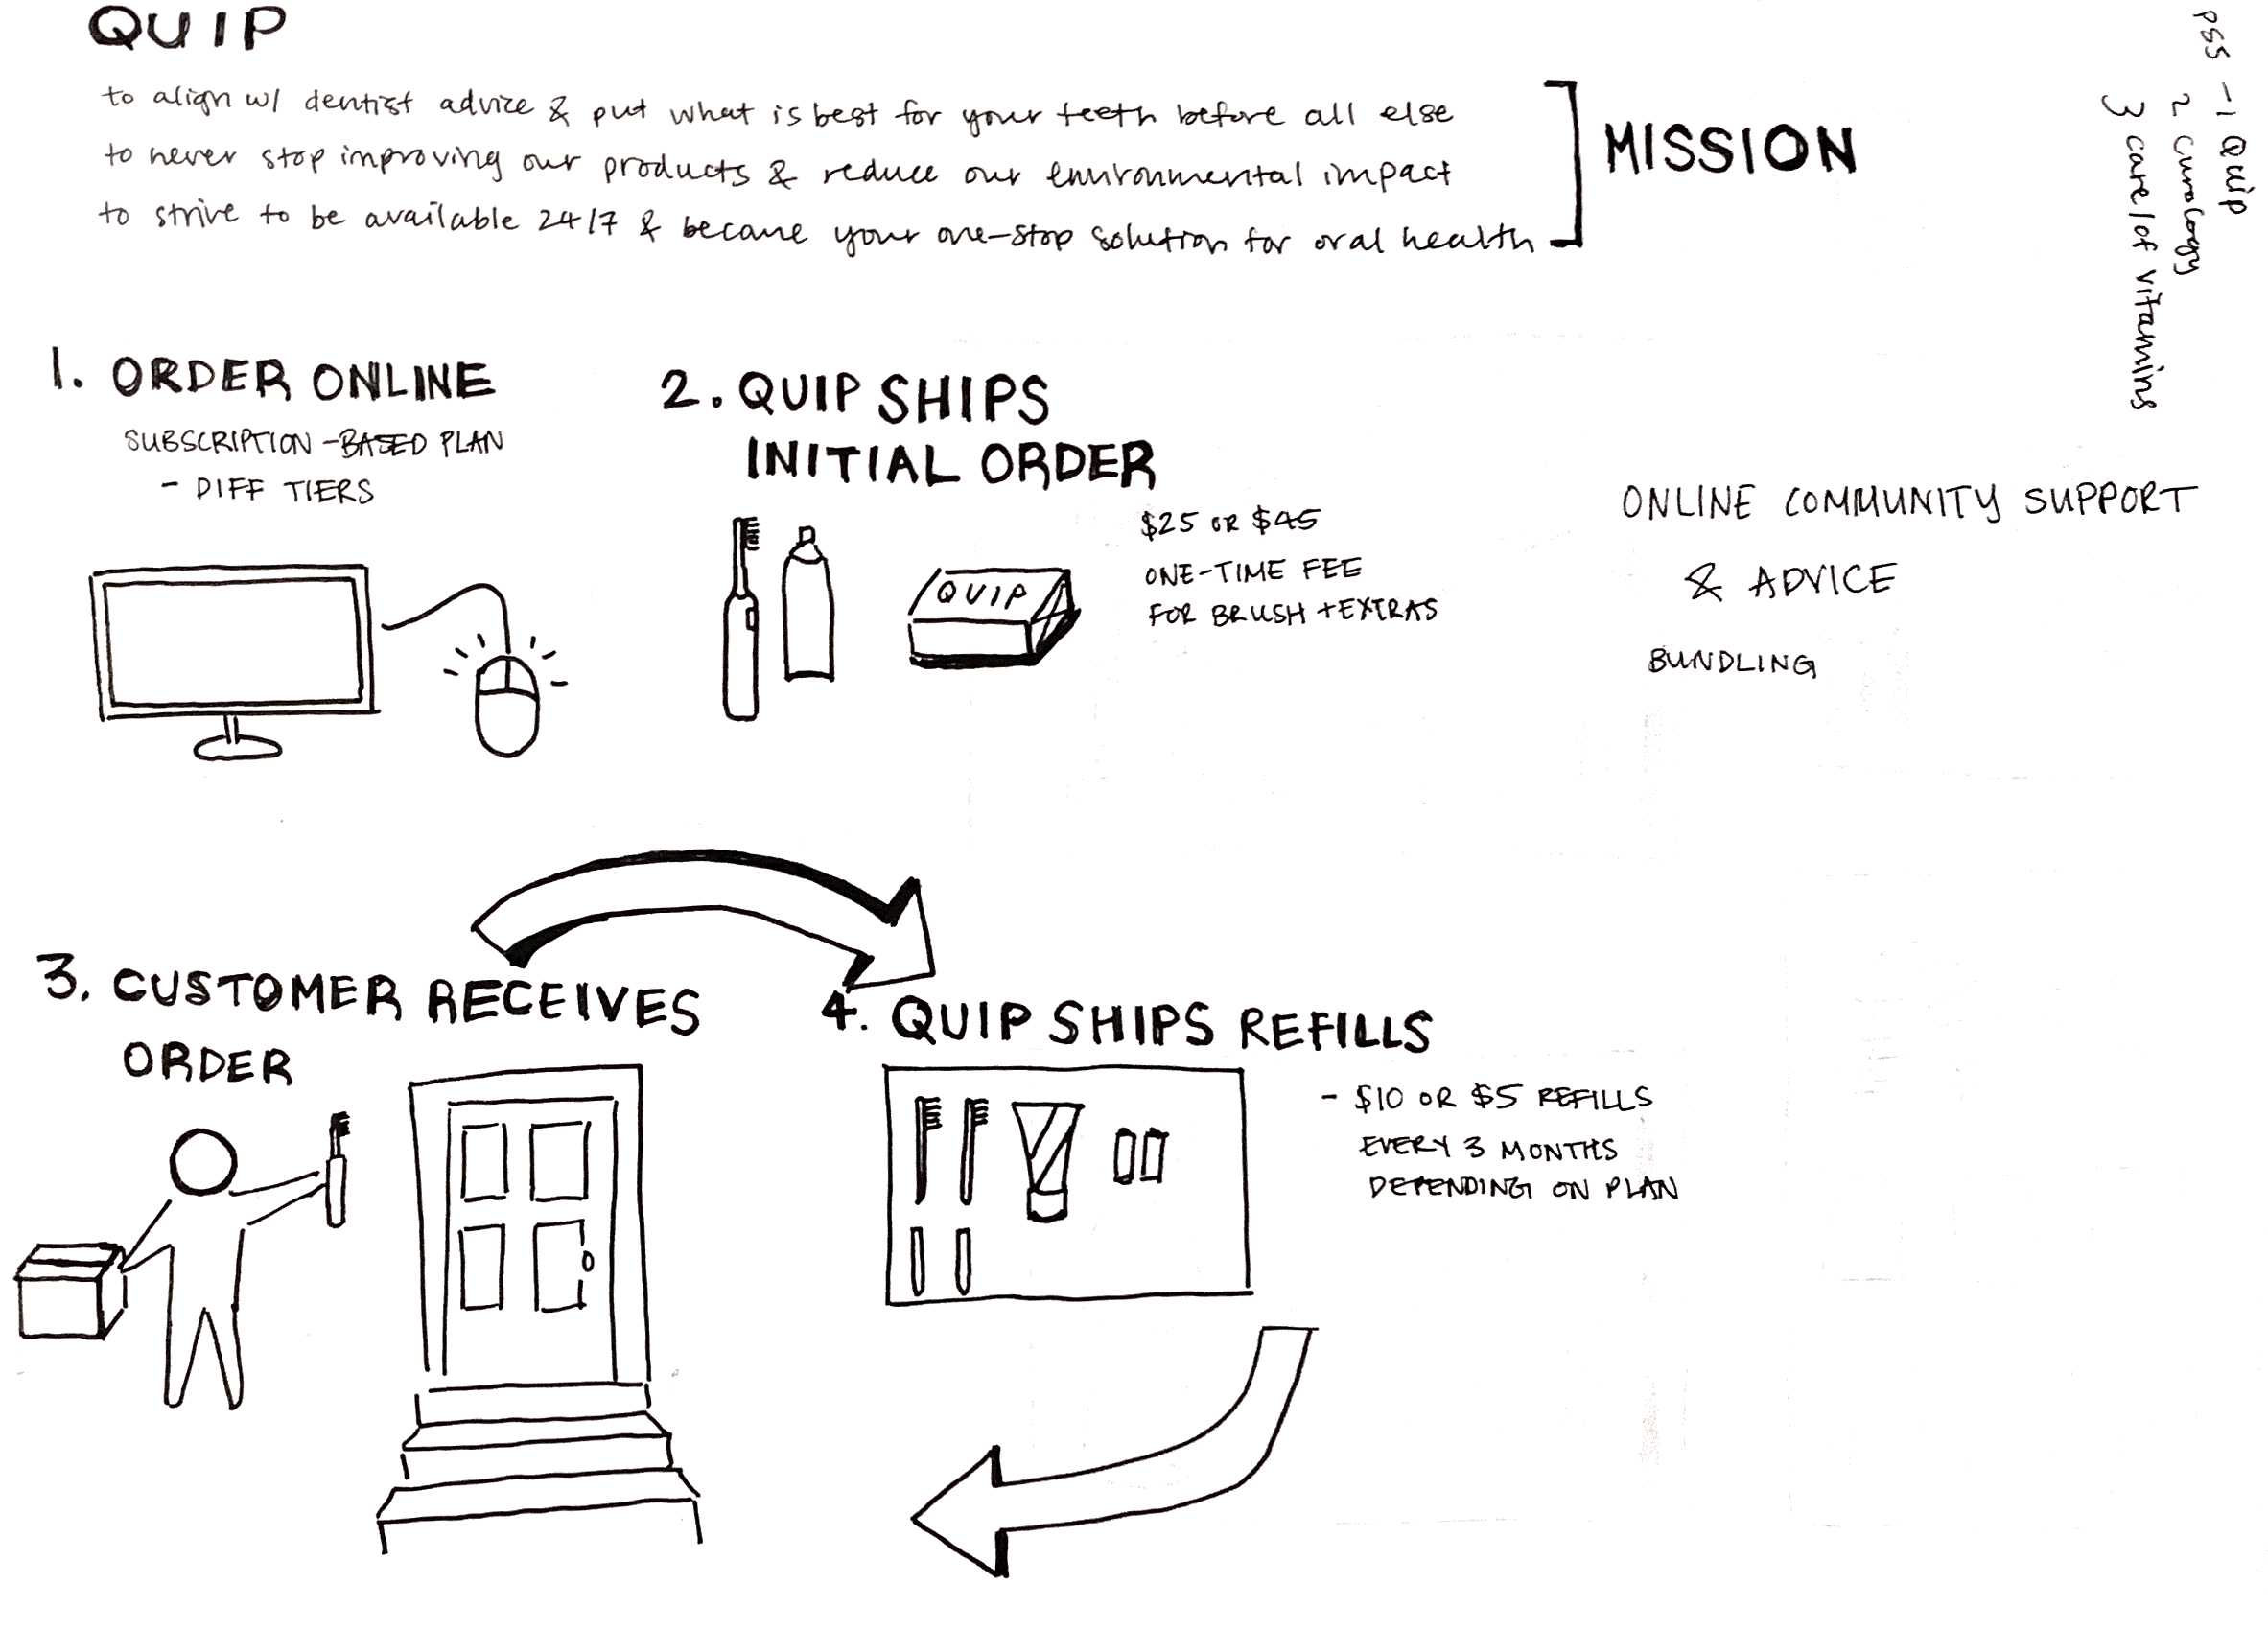 QUIP
to align w/ dentist advice & put what is best for your teeth before all else
to never stop improving our products & reduce our environmental impact
to strive to be available 24/7 & become your one-stop solution for oral health
MISSION
PSS - 1 Quip
2 curology
3 care/of vitamins
1. ORDER ONLINE
SUBSCRIPTION-BASED PLAN
- DIFF TIERS
2. QUIP SHIPS
INITIAL ORDER
QUIP
$25 OR $45
ONE-TIME FEE
FOR BRUSH + EXTRAS
ONLINE COMMUNITY SUPPORT
& ADVICE
BUNDLING
3. CUSTOMER RECEIVES
ORDER
4. QUIP SHIPS REFILLS
- $10 OR $5 REFILLS
EVERY 3 MONTHS
DEPENDING ON PLAN